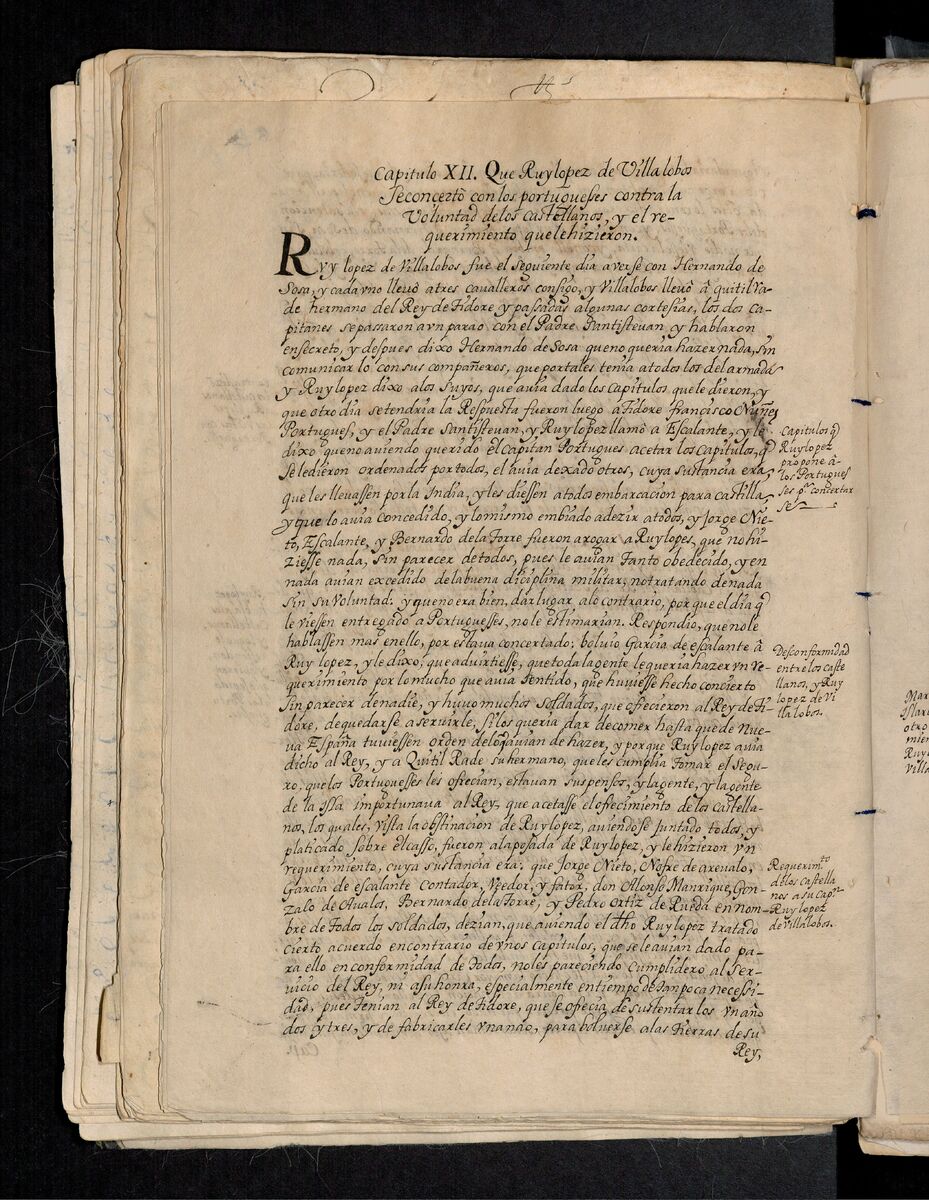 Capitulo XII. Que Ruylopez de Villalobos
Seconcertò con los portugueses contra la
Voluntad de los Castellanos, y el re-
querimiento quele hizieron.
Ruy lopez de Villalobos fue el seguiente dia averse con Hernando de
Sosa, y cada vno llevò atres cavalleros consigo, y Villalobos llevò â quitil Ra-
de hermano del Rey de Tidore y passadas algunas cortesias, los dos ca-
pitanes se passaron avn parao con el Padre Santistevan y hablaron
ensecreto, y despues dixo Hernando de Sosa que no queria hazer nada, sin
comunicar lo con sus compañeros, que por tales tenia atodos los del armada
y Ruylopez dixo alos suyos, que avia dado los Capitulos quele dieron, y
que otro dia se tendria la Respuesta fueron luego a Tidore francisco Nuñes
Portugues, y el Padre Santistevan, y Ruylopez llamò a Escalante, y le
dixo que no aviendo querido el capitan Portugues acetar los Capitulos, q̃
se le dieron ordenados por todos, el avia dexado otros, cuya sustancia era,
que les llevassen por la India, y les diessen atodos embarcacion para castilla,
y que lo avia concedido, y lo mismo embiado adezir atodos, y Jorge Nie-
to, Escalante, y Bernardo dela Torre fueron arogar a Ruylopes, que no hi-
ziesse nada, sin parecer de todos, pues le avian tanto obedecido, y en
nada avian excedido dela buena diciplina militar, no tratando de nada
sin su Voluntad: y que no era bien, dar lugar alo contrario, porque el dia q̃
le viessen entregado a Portugueses, no le estimarian. Respondio, que no le
hablassen mas en ello, por estava concertado; bolvio Garcia de escalante â
Ruy lopez, y le dixo, que advirtiesse, que toda la gente le queria hazer vn re-
querimiento por lo mucho que avia sentido, que huviesse hecho concierto
sin parecer de nadie, y huvo muchos soldados, que ofrecieron al Rey de Ti-
dore, de quedarse a servirle, si los queria dar de comer hasta que de Nue-
va España tuviessen orden delo q̃ avian de hazer, y porque Ruylopez avia
dicho al Rey, y a Quitil Rade su hermano, que les cumplia tomar el segu-
ro, que los Portugueses les ofrecian, estavan suspensos, y la gente, y la gente
de la Isla importunava al Rey, que acetasse el ofrecimiento de los castella-
nos, los quales, vista la obstinacion de Ruylopez, aviendose juntado todos, y
platicado sobre el casso, fueron ala posada de Ruylopez, y le hizieron vn
requerimiento, cuya sustancia era: que Jorge Nieto, Nofre de arevalo,
Garcia de escalante Contador, Veedor, y fator, don Alonso Manrique, Gon-
zalo de Avalos, Bernardo dela Torre, y Pedro Ortiz de Rueda en nom-
bre de Todos los soldados, dezian, que aviendo el dho Ruylopez tratado
cierto acuerdo en contrario de vnos Capitulos, que se le avian dado pa-
ra ello en conformidad de todos, no les pareciendo cumplidero al ser-
vicio del Rey, ni asu honra, especialmente en tiempo de tan poca necessi-
dad, pues tenian al Rey de Tidore, que se ofrecia, de sustentarlos vn año
dos y tres, y de fabricarles vna nao, para bolverse, alas tierras de su
Rey,
Capitulos q̃
Ruylopez
propone â
los Portugue
ses pa. concertar
se
Desconformidad
entre los caste
llanos, y Ruy
lopez de Vi
llalobos.
Requerimto
de los castella
nos a su Capn.
Ruylopez
de Villalobos.
Mar
Islare
otro
mien
Ruy
Villa